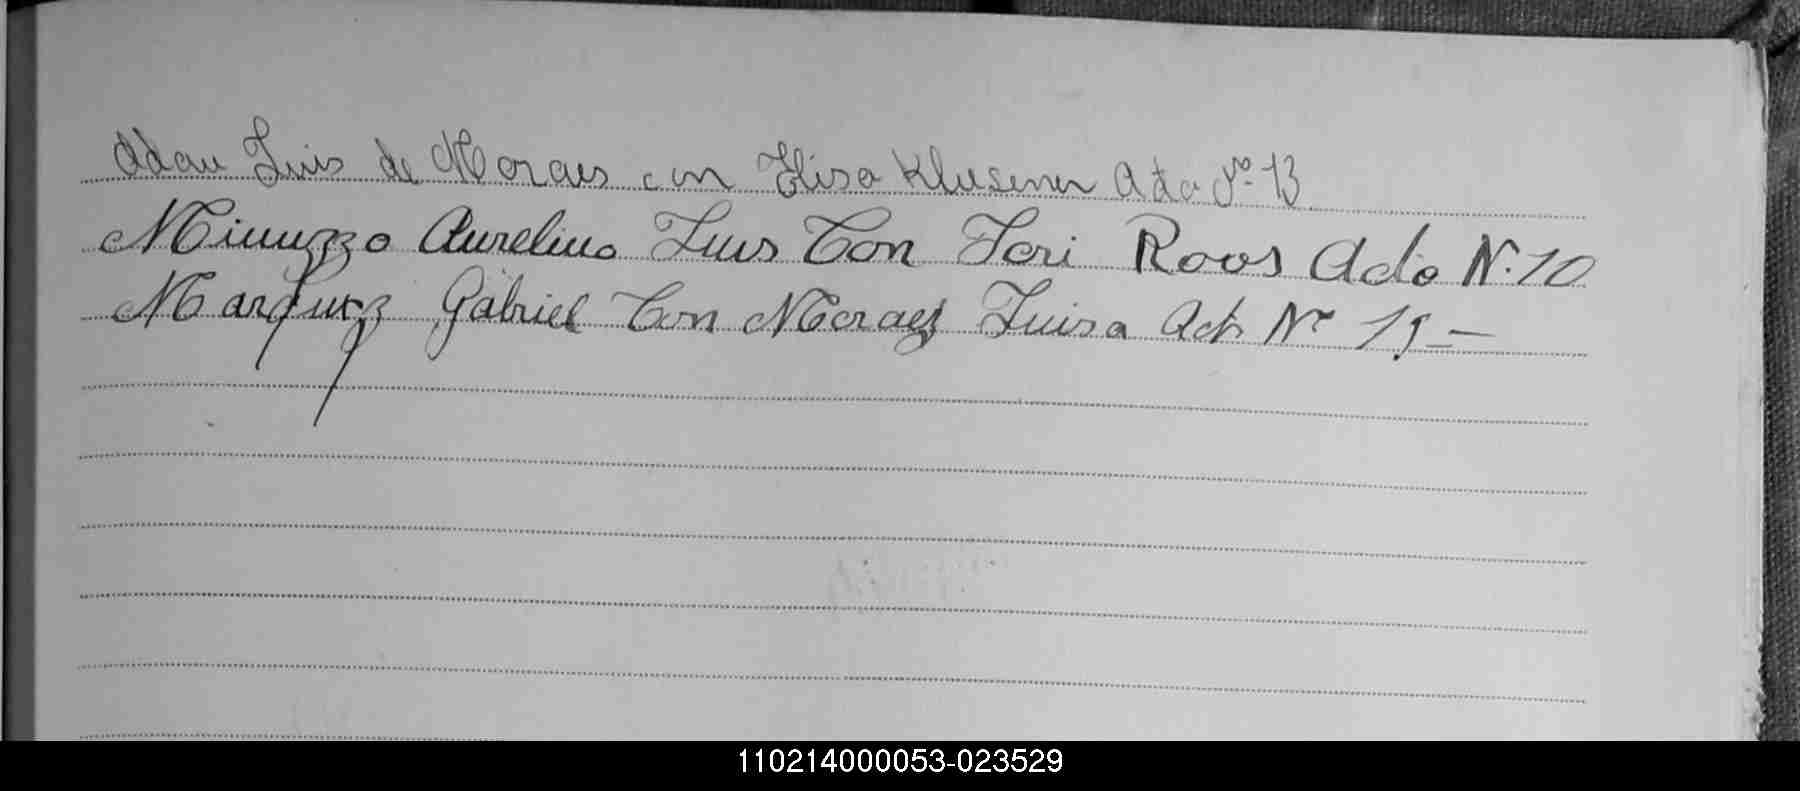 Adau Luis de Moraes con Elisa Klusener Acta Nº 13
Minuzzo Aurelino Luis Con Teri Roos Acto N. 10
Marquez Gabriel Con Moraes Luisa Act Nº 15 —
110214000053-023529